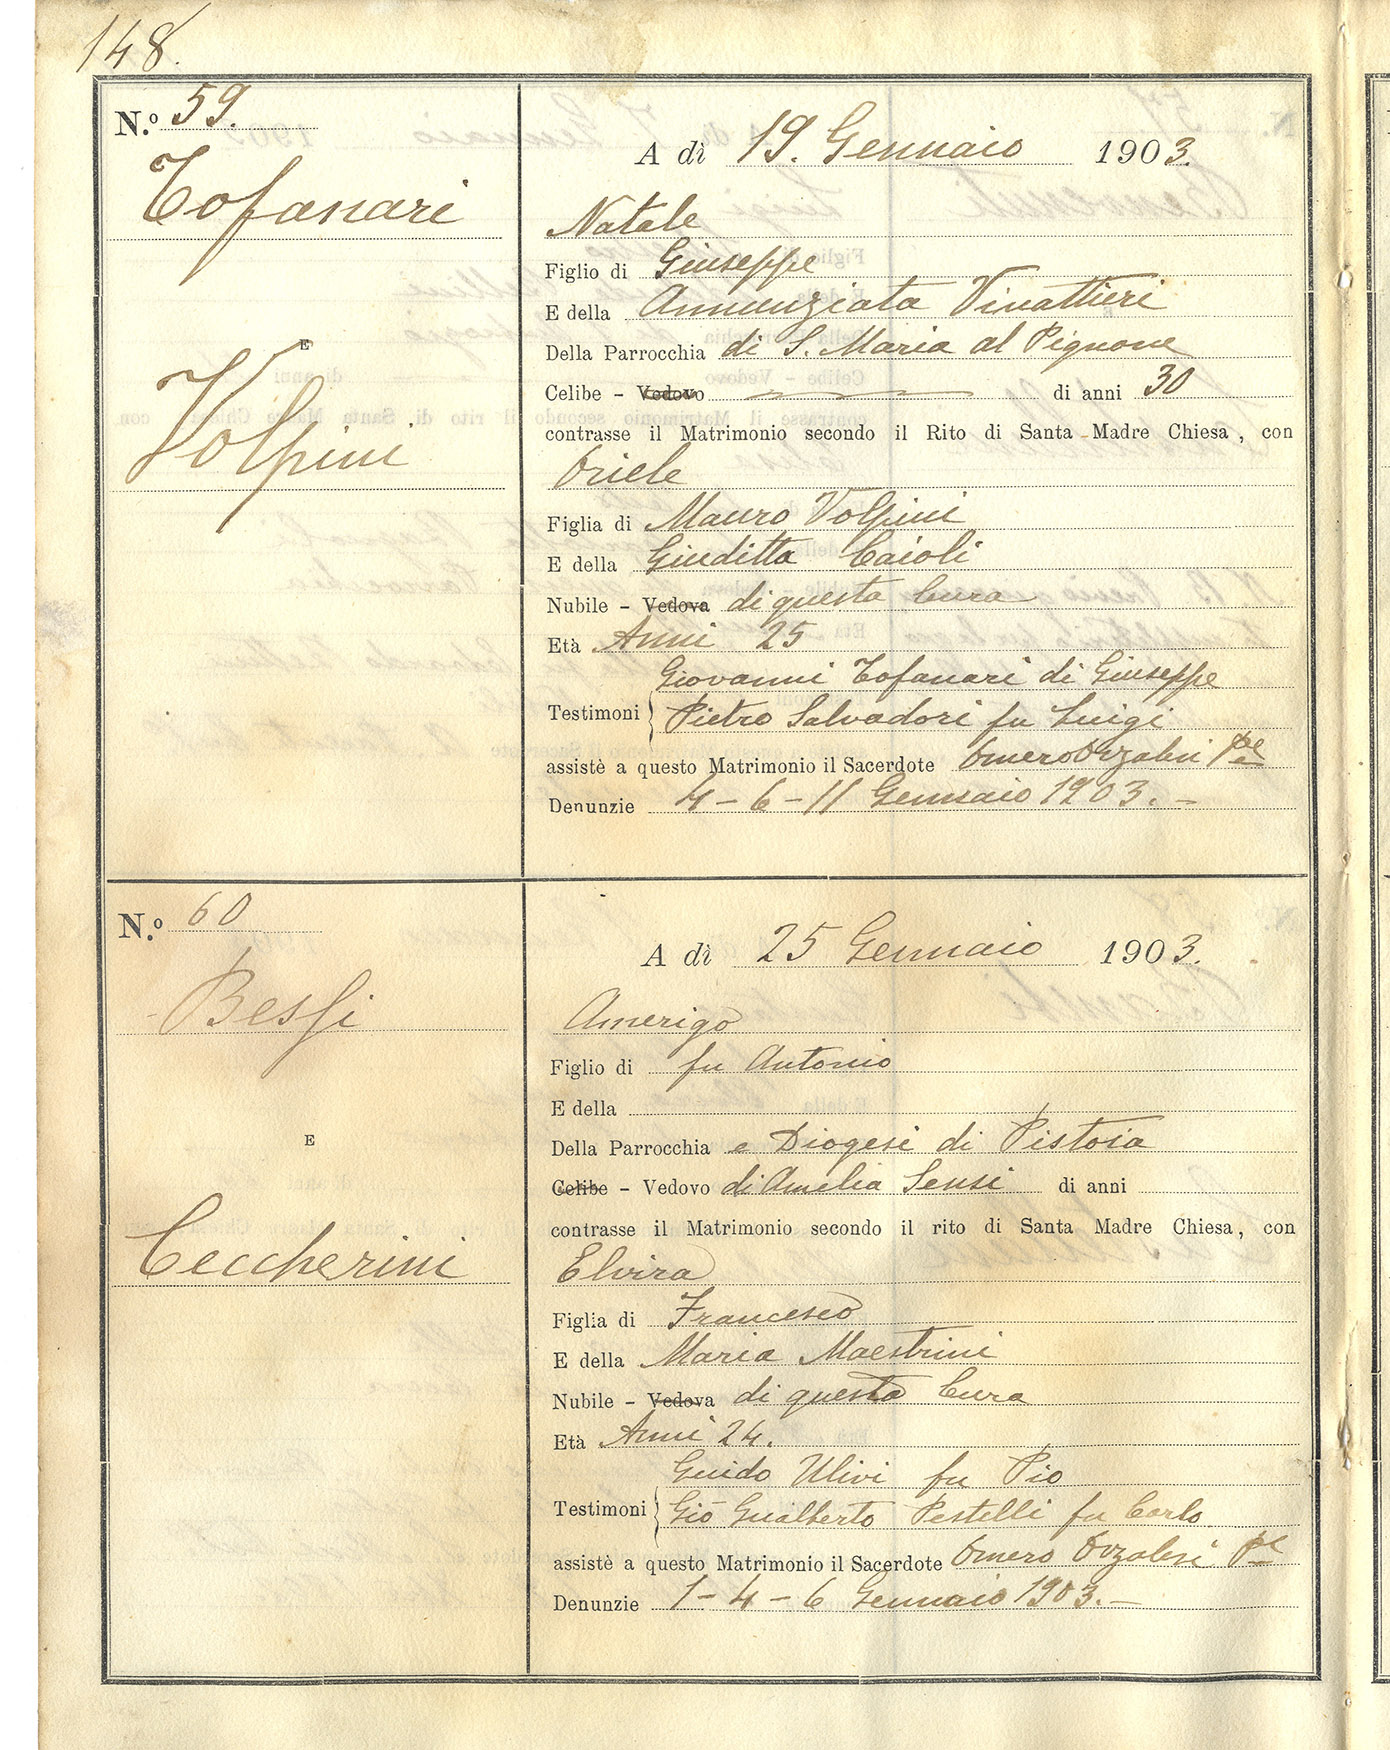 148.
N.º 59.
Tofanari
E
Volpini
A dì 19. Gennaio 1903.
Natale
Figlio di Giuseppe
E della Annunziata Vinattieri
Della Parrocchia di S. Maria al Pignone
Celibe - Vedovo di anni 30
contrasse il Matrimonio secondo il Rito di Santa Madre Chiesa, con
Oriele
Figlia di Mauro Volpini
E della Giuditta Caioli
Nubile - Vedova di questa Cura
Età Anni 25
Giovanni Tofanari di Giuseppe
Testimoni Pietro Salvadori fu Luigi
assistè a questo Matrimonio il Sacerdote Omero Orzalesi
Denunzie 4 - 6 - 11 Gennaio 1903. -
N.º 60
Bessi
E
Ceccherini
A dì 25 Gennaio 1903.
Amerigo
Figlio di fu Antonio
E della
Della Parrocchia e Diogesi di Pistoia
Celibe - Vedovo di Amelia Sensi di anni
contrasse il Matrimonio secondo il rito di Santa Madre Chiesa, con
Elvira
Figlia di Francesco
E della Maria Maestrini
Nubile - Vedova di questa Cura
Età Anni 24.
Guido Ulivi fu Pio
Testimoni Gio Gualberto Pestelli fu Carlo
assistè a questo Matrimonio il Sacerdote Omero Orzalesi
Denunzie 1 - 4 - 6 Gennaio 1903. -